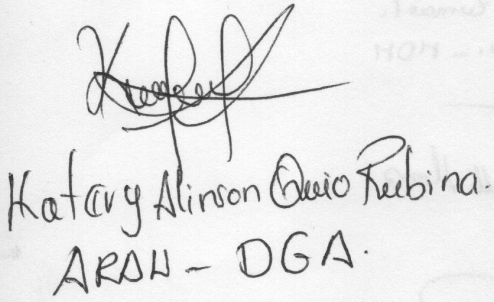 Katary Alinson Quio Rubina.
ARAW - DGA.